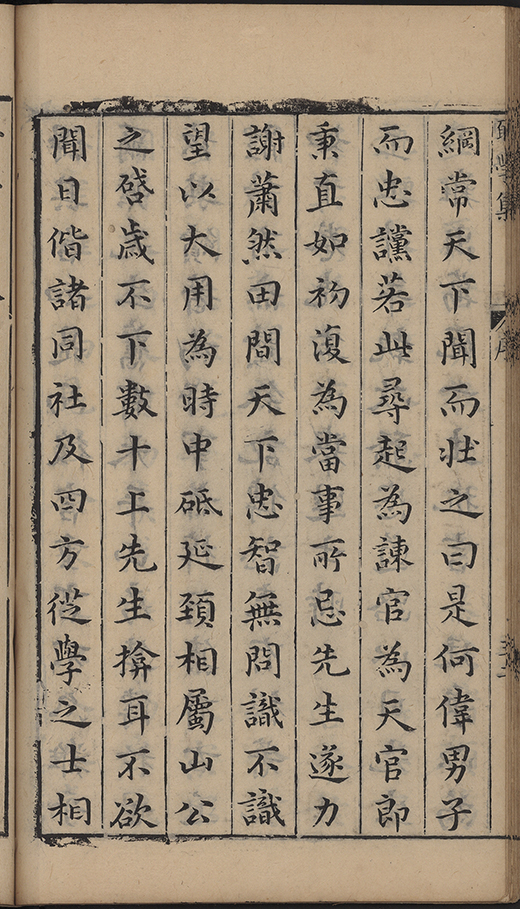 綱常天下聞而壯之曰是何偉男子
而忠讜若此尋起為諫官為天官郎
秉直如初復為當事所忌先生遂力
謝蕭然田間天下忠智無問識不識
望以大用為時中砥延頸相屬山公
之啓歲不下數十上先生揜耳不欲
聞日偕諸同社及四方從學之士相